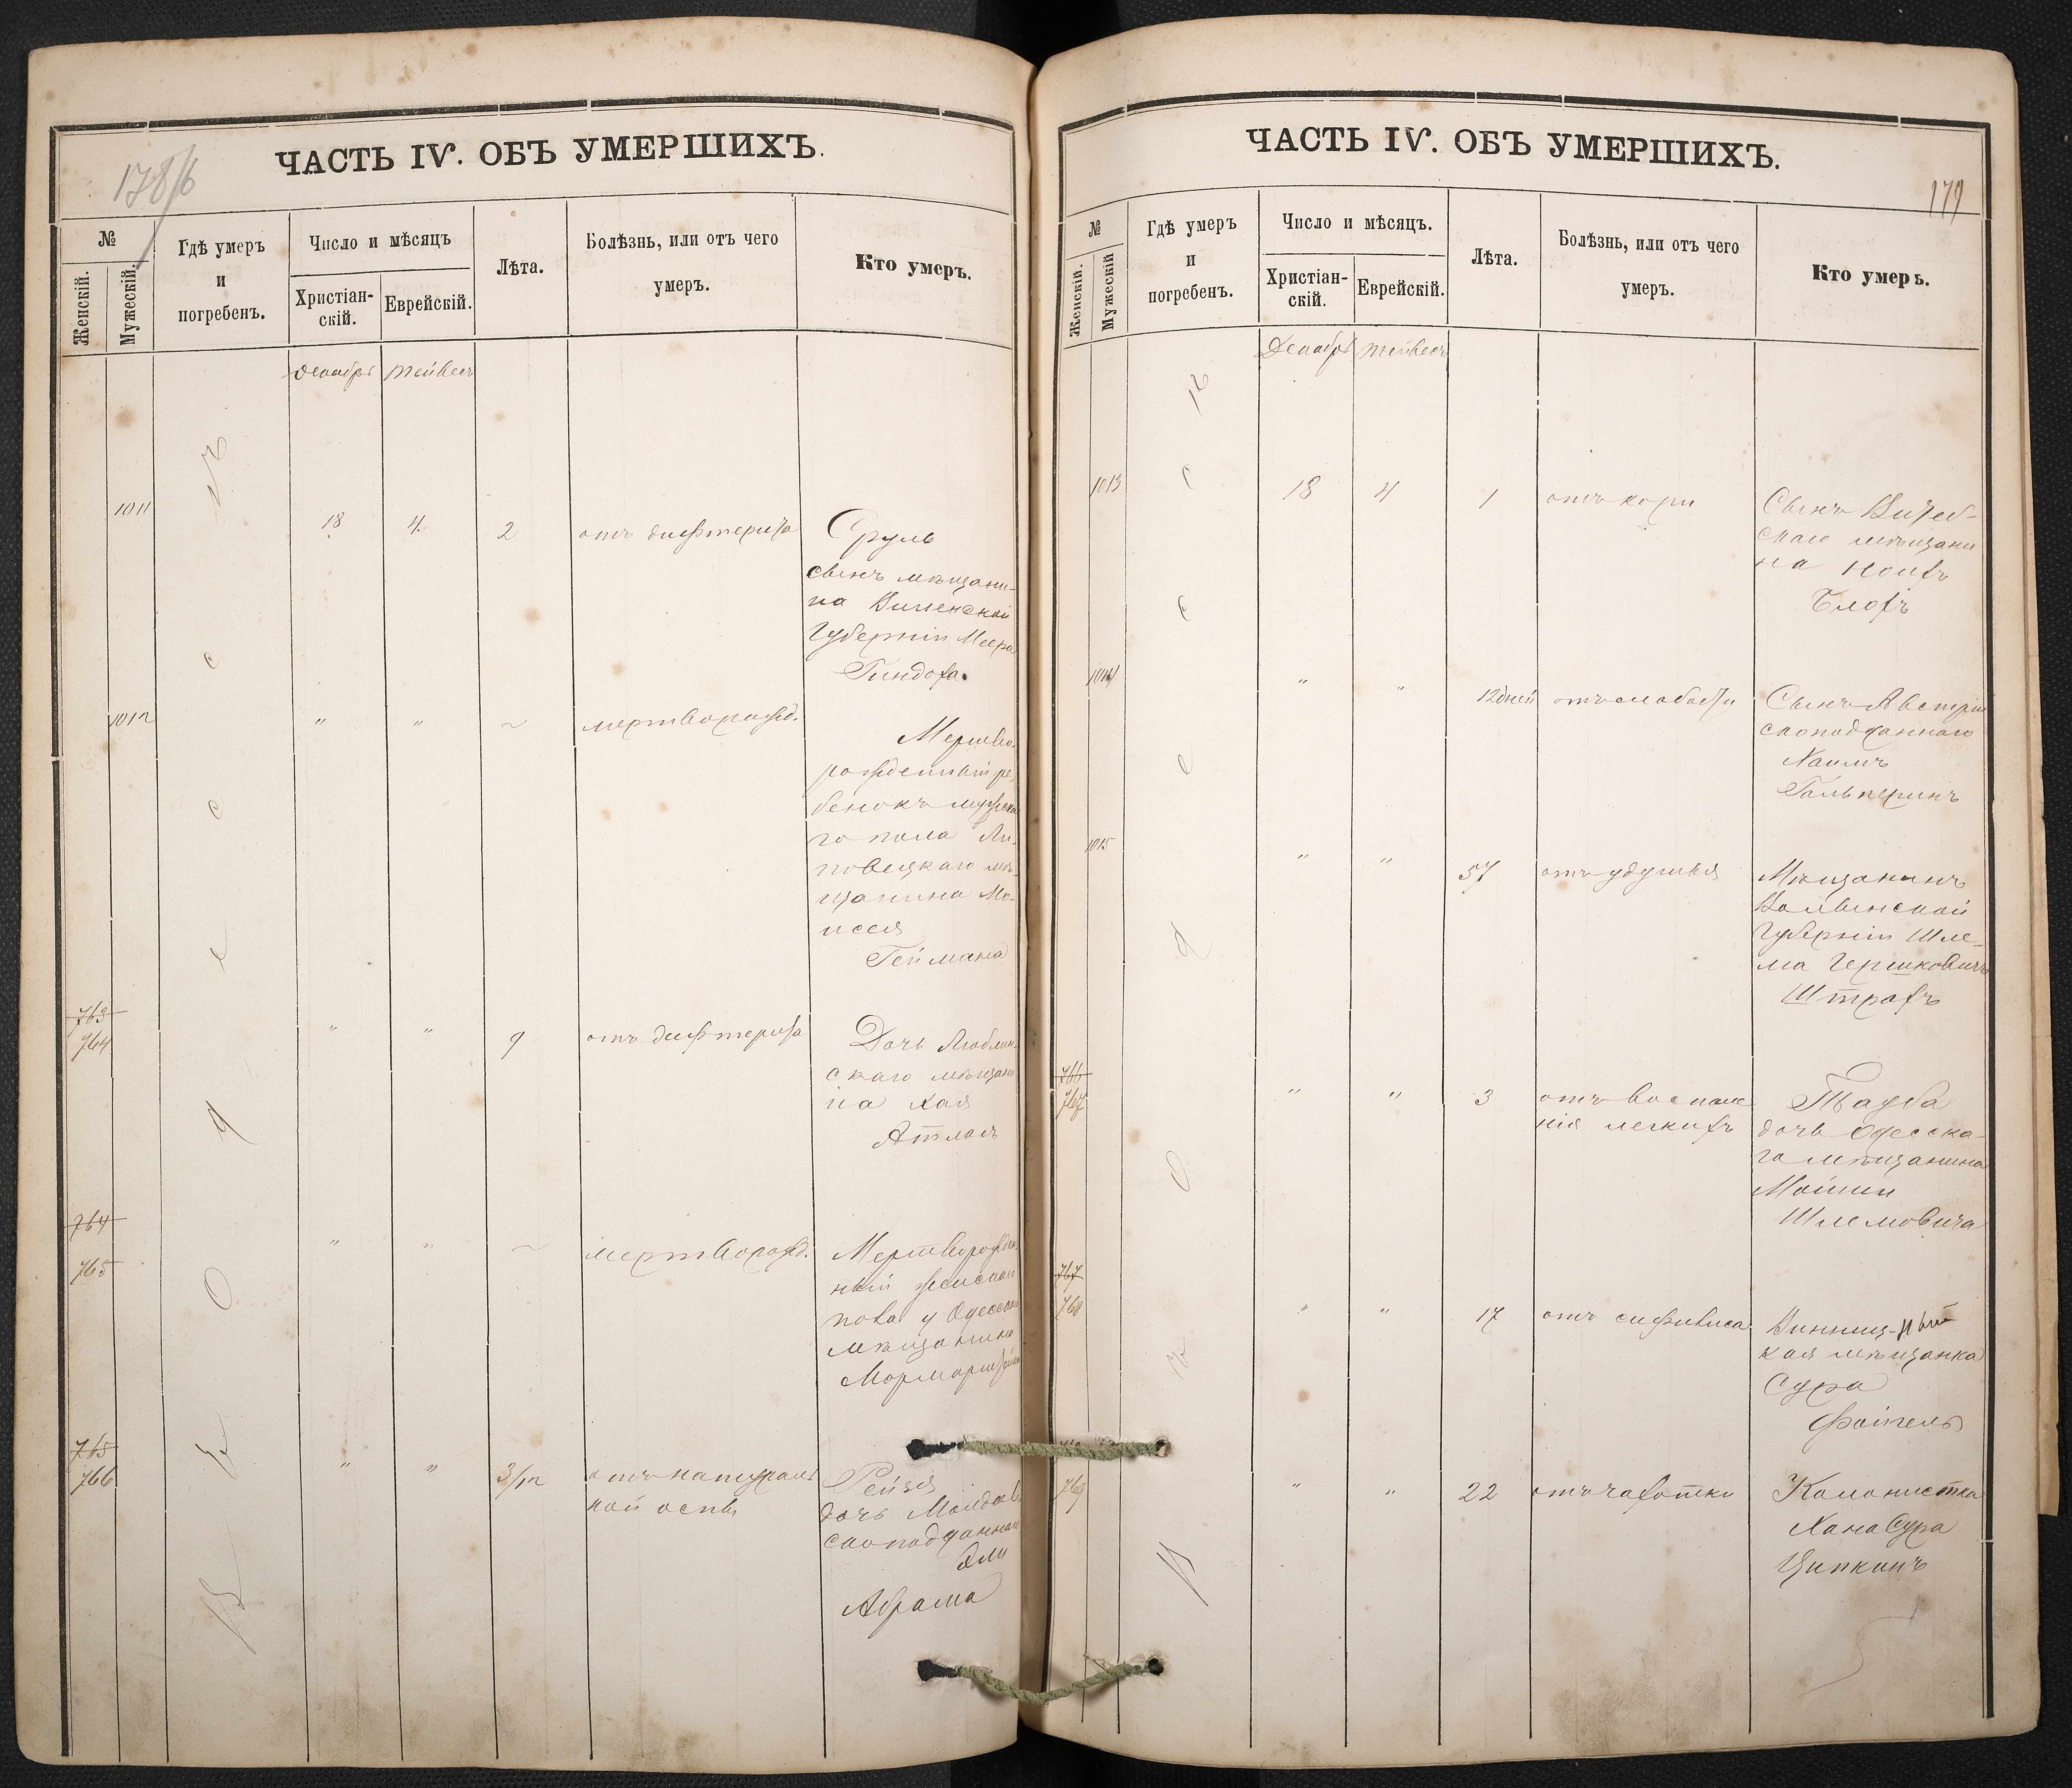 ЧАСТЬ IV. ОБЪ УМЕРШИХЪ.
178/б
№
Женскій.
Мужескій.
Гдѣ умеръ
и
погребенъ.
Число и мѣсяцъ
Христіан-
скій.
Еврейскій.
Лѣта.
Болѣзнь, или отъ чего
умеръ.
Кто умеръ.
Декабрь Тейвесъ
въ Одессѣ
1011 18 4 2 отъ дифтерита Сруль
сынъ мѣщани-
на Виленской
Губерніи Меера
Гиндоха.
1012 " " ~ мертворожд. Мертво-
рожденный ре-
бенокъ мужска
го пола Ли-
повецкаго мѣ-
щанина Мо-
исея
Геймана
763
764 " " 9 отъ дифтерита Дочь Люблин-
скаго мѣщани
на Хая
Атласъ
764
765 " " ~ мертворожд. Мертворожден
ный женскаго
пола у Одесскаго
мѣщанина
765
766 " " 3/м отъ натураль
ной оспы Рейзя
дочь Молдав
скоподданнаго
Эли
Абрама
ЧАСТЬ IV. ОБЪ УМЕРШИХЪ.
179
№
Женскій.
Мужескій
Гдѣ умеръ
и
погребенъ.
Число и мѣсяцъ.
Христіан-
скій.
Еврейскій.
Лѣта.
Болѣзнь, или отъ чего
умеръ.
Кто умеръ.
Декабрь Тейвесъ
въ Одессѣ
1013 18 4 1 отъ кори Сынъ Витеб-
скаго мѣщани
на Ноихъ
Блохъ
1014 " " 12 дней отъ слабости Сынъ Австрій
скоподданнаго
Хаимъ
Гальперинъ
1015 " " 57 отъ удушья Мѣщанинъ
Волынской
Губерніи Шле-
ма Гершковичъ
Штрахъ
766
767 " " 3 отъ воспале
нія легкихъ Тауба
дочь Одесска-
го мѣщанина
Мойши
Шлемовича
767
768 " " 17 отъ сифилиса Винниц-
кая мѣщанка
Сура
Файгель
769 " " 22 отъ чахотки Колонистка
Хана Сура
Ципкинъ